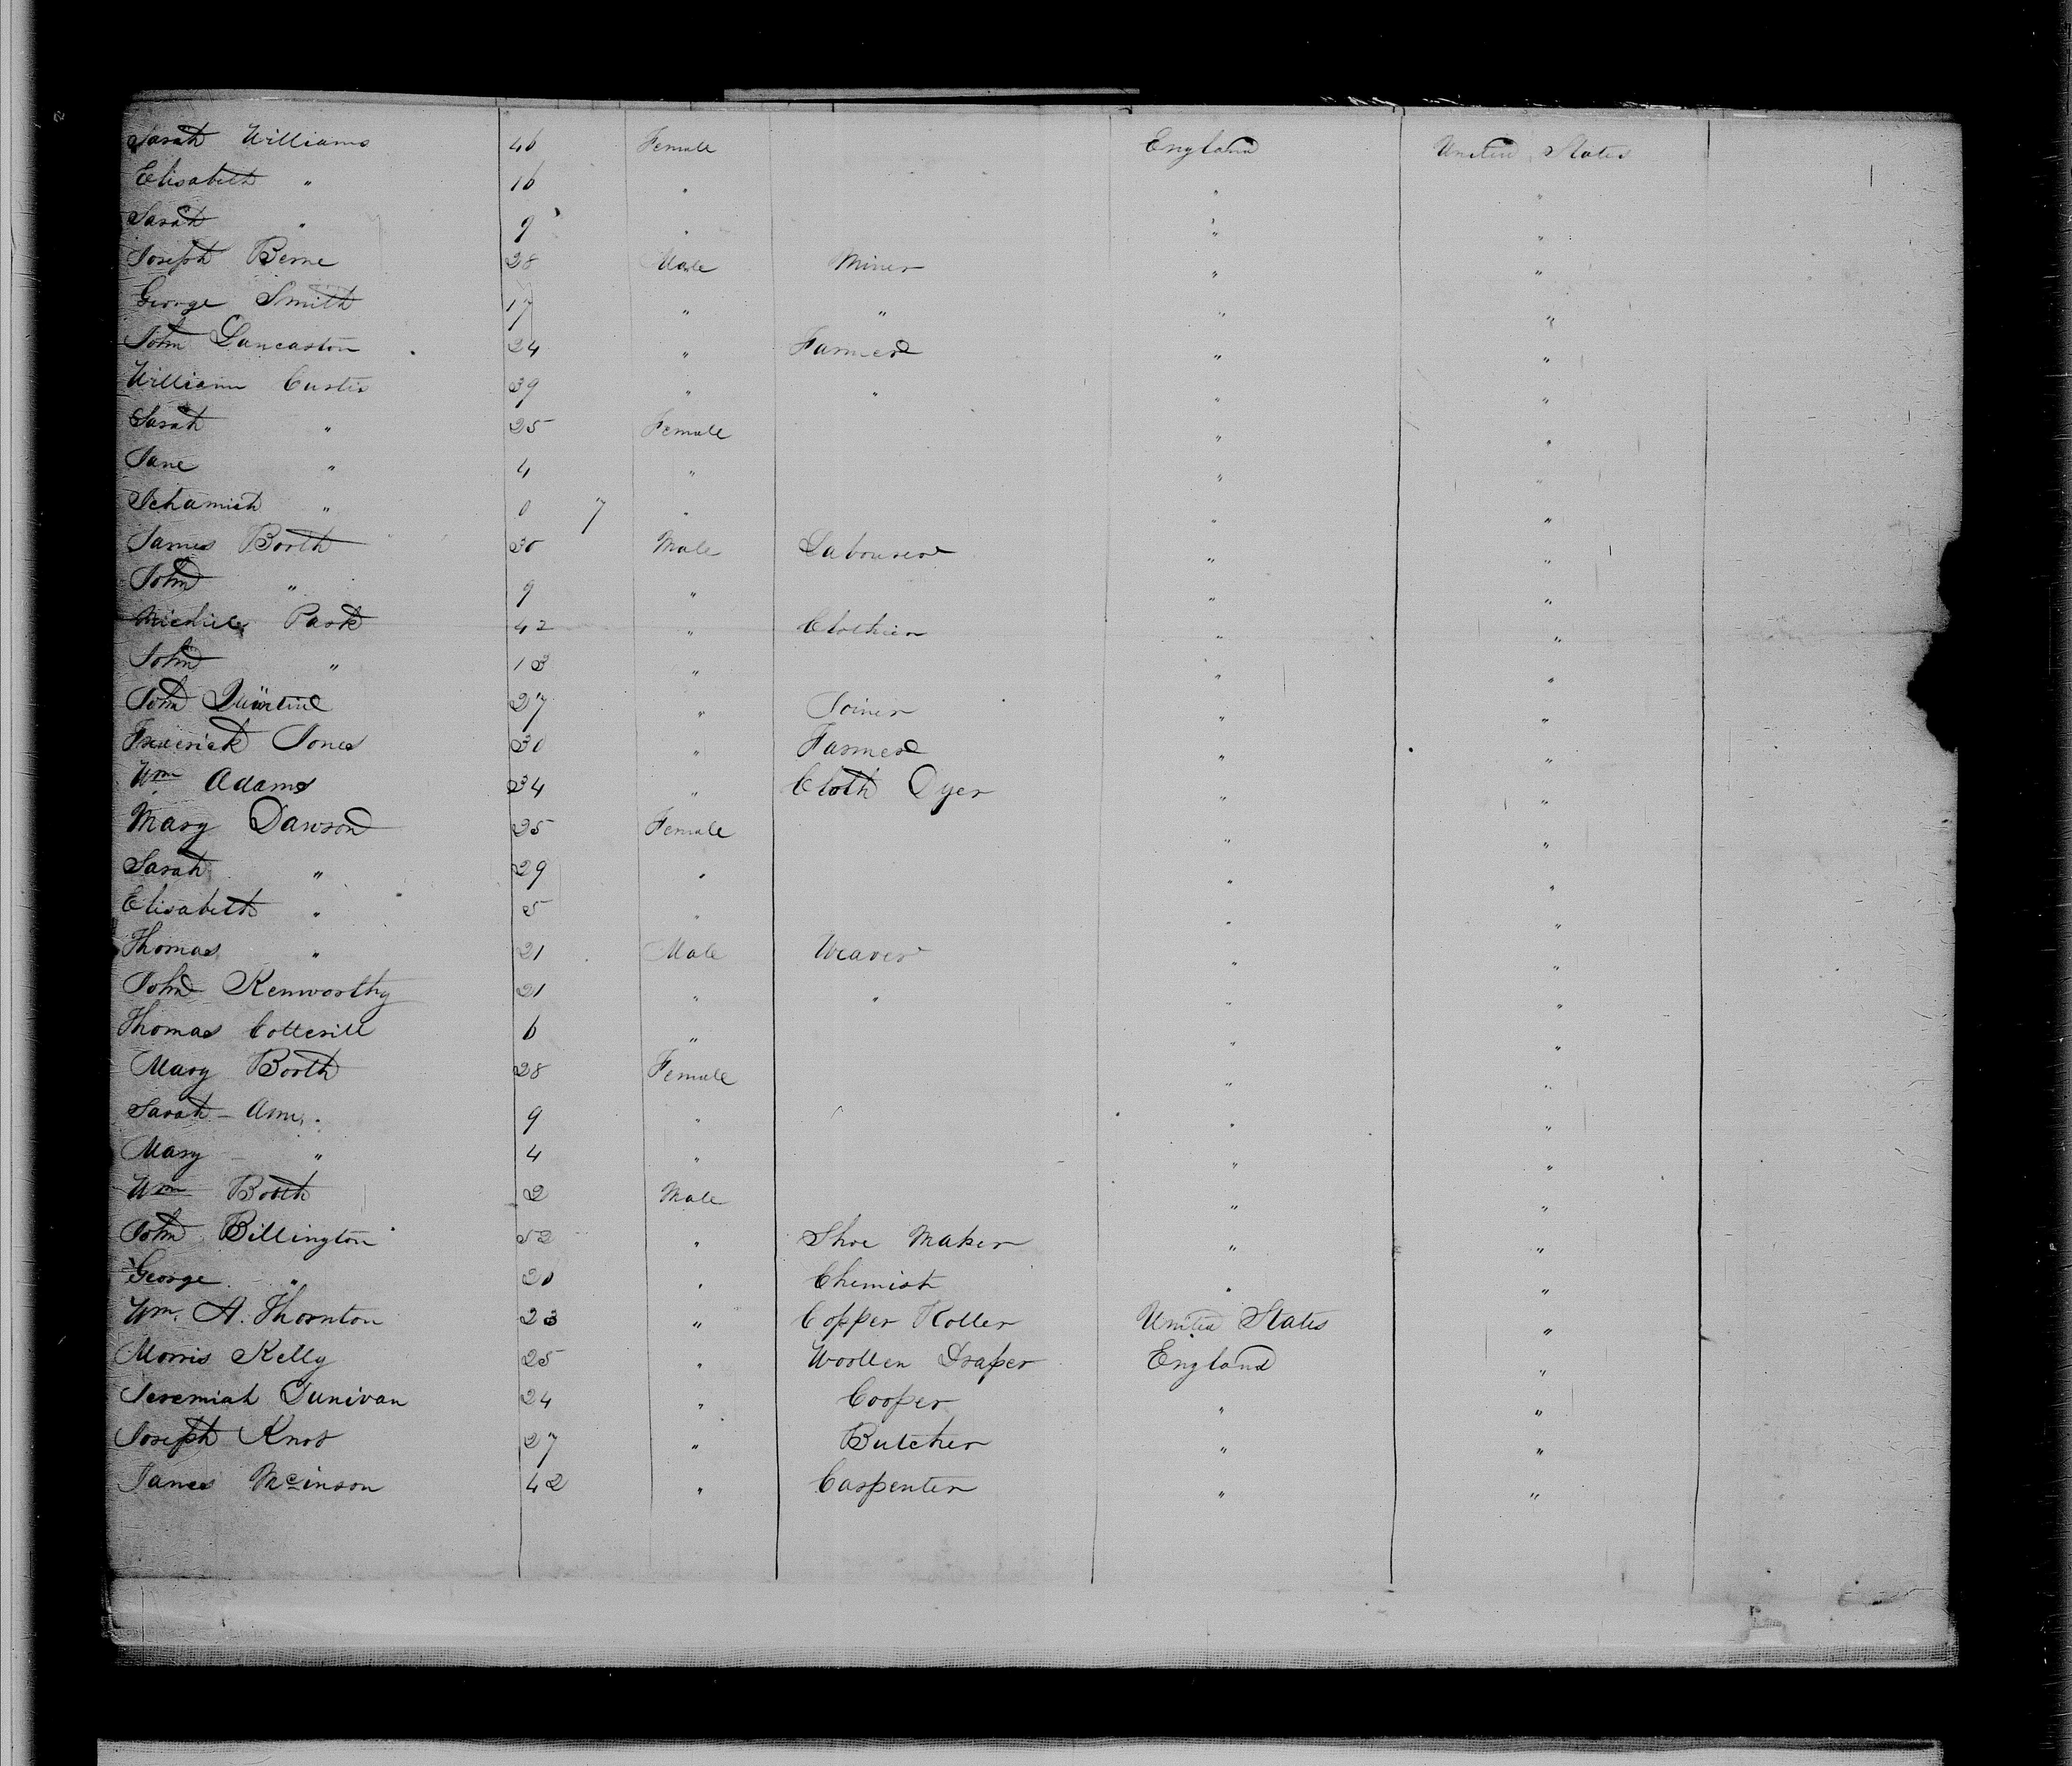 Sarah Williams 46 Female England United States
Elisabeth " 16 " " "
Sarah " 9 " " "
Joseph Berne 28 Male Miner " "
George Smith 17 " " " "
John Lancaston 24 " Farmer " "
William Custis 39 " " " "
Sarah " 25 Female " "
Jane " 4 " " "
" 0 7 " " "
James Booth 30 Male Labourer " "
John " 9 " " "
Park 42 " Clothier " "
John " 13 " " "
John 27 " Joiner " "
Frederick Jones 30 " Farmer " "
Wm Adams 34 " Cloth Dyer " "
Mary Dawson 25 Female " "
Sarah " 29 " " "
Elisabeth " 5 " " "
Thomas " 21 Male Weaver " "
John Kenworthy 21 " " " "
Thomas Cotterill 6 " " "
Mary Booth 28 Female " "
Sarah - Ann " 9 " " "
Mary " 4 " " "
Wm Booth 2 Male " "
John Billington 52 " Shoe Maker " "
George " 20 " Chemist " "
Wm. A. Thornton 23 " Copper Roller United States "
Morris Kelly 25 " Woollen Draper England "
Jeremiah Dunivan 24 " Cooper " "
Joseph Knot 27 " Butcher " "
James Mcinson 42 " Carpenter " "